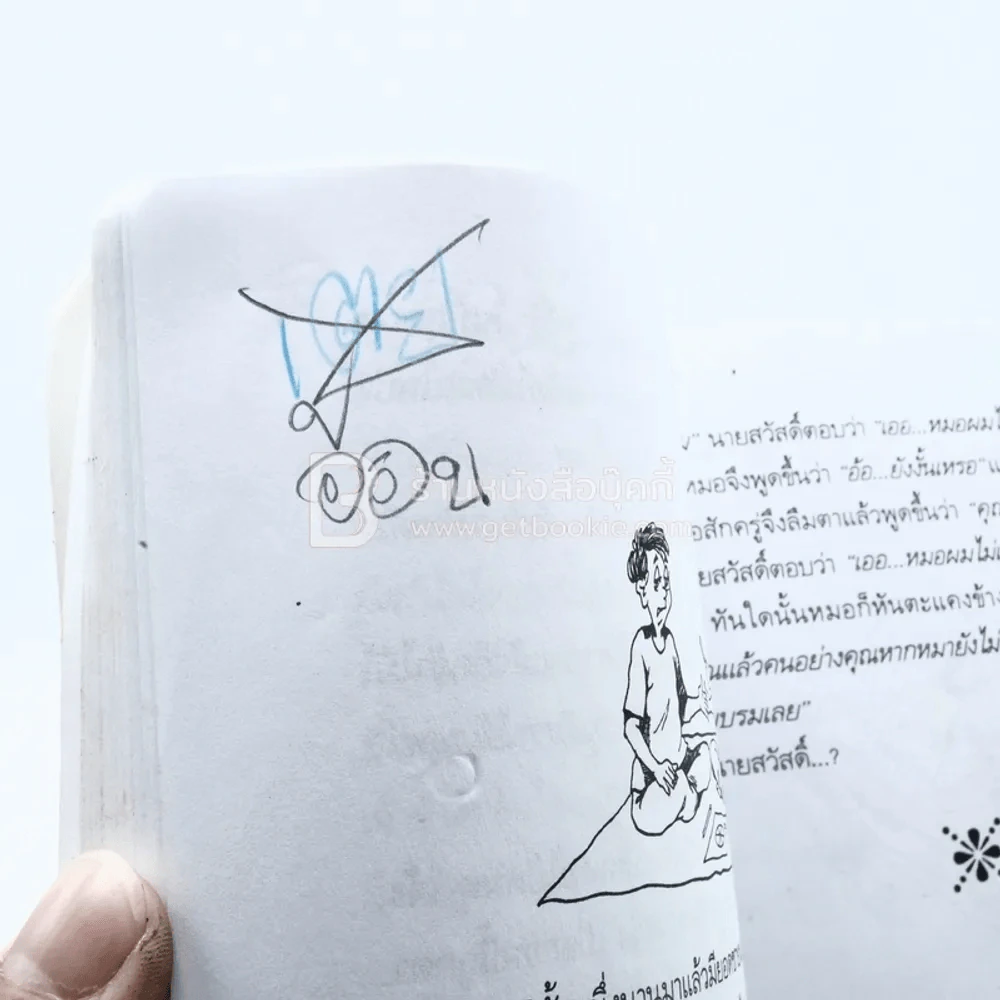 " นายสวัสดิ์ตอบว่า "เออ...หมอผมไ
หมอจึงพูดขึ้นว่า "อ้อ...ยังงั้นเหรอ" แ
อสักครู่จึงลืมตาแล้วพูดขึ้นว่า "คุณ
ยสวัสดิ์ตอบว่า "เออ...หมอผมไม่
ทันใดนั้นหมอก็หันตะแคงข้าง
นแล้วคนอย่างคุณหากหมายังไม่
บรมเลย"
นายสวัสดิ์...?
ร้านหนังสือบุ๊คกี้
www.getbookie.com
นานมาแล้วมียอดชาย